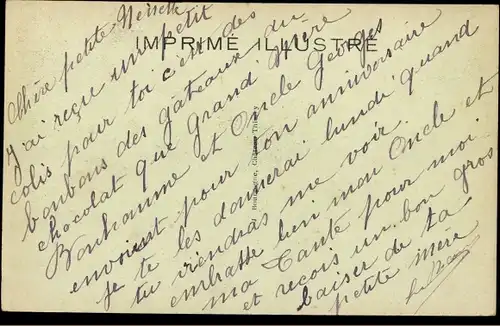 IMPRIMÉ ILLUSTRÉ
Chère petite
J'ai reçue un petit
colis pour toi c'est des
bonbons des gâteaux du
chocolat que Grand Mère
Bonhomme et Oncle Georges
envoient pour ton anniversaire
je te les donnerai lundi quand
tu viendras me voir.
embrasse bien mon Oncle et
ma Tante pour moi
et reçois un bon gros
baiser de ta
petite mère
Château-Thierry